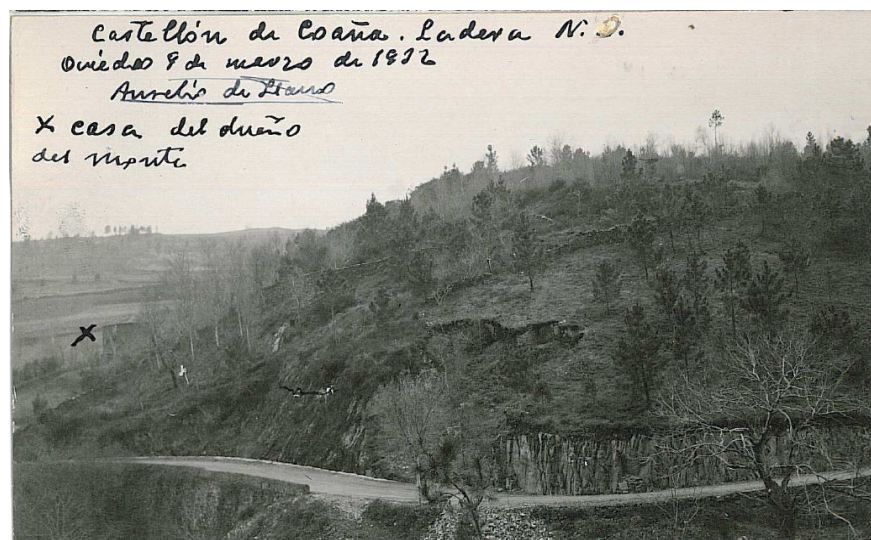 Castellón de Coaña. Ladera N.
Oviedo 9 de marzo de 1932
Aurelio de Llano
X casa del dueño
del monte
X